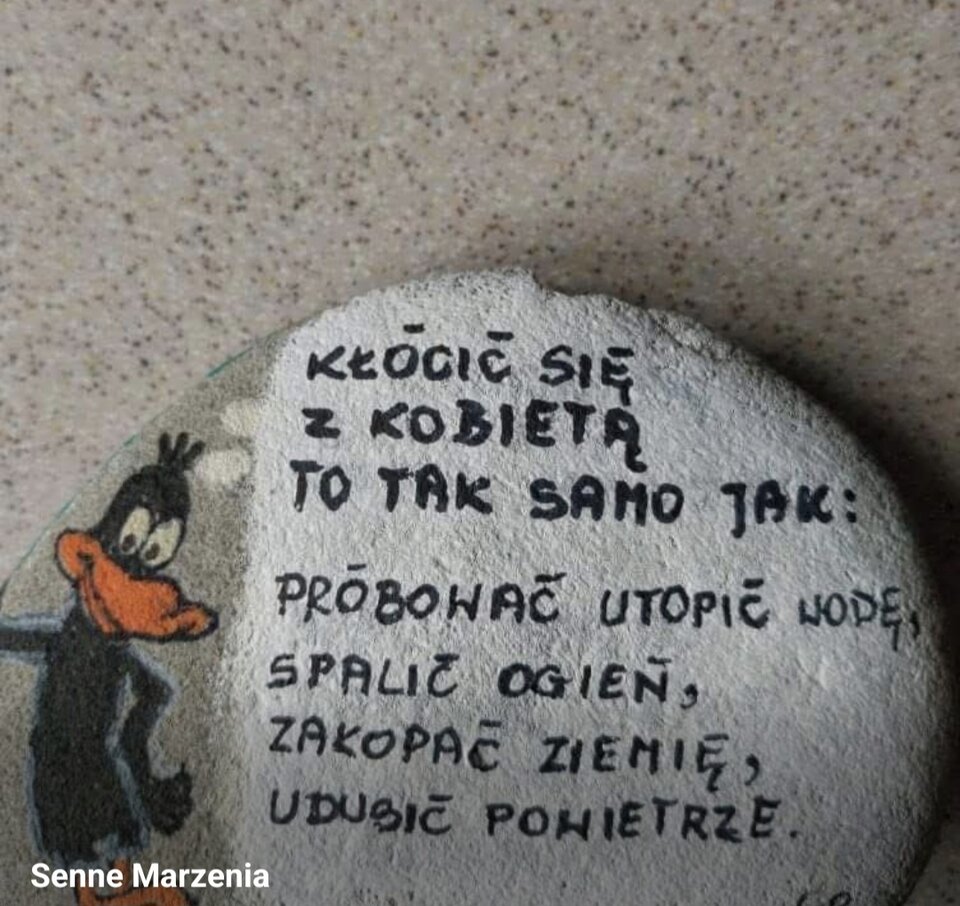 KŁÓCIĆ SIĘ
Z KOBIETĄ
TO TAK SAMO JAK:
PRÓBOWAĆ UTOPIĆ WODĘ,
SPALIĆ OGIEŃ,
ZAKOPAĆ ZIEMIĘ,
UDUSIĆ POWIETRZE.
Senne Marzenia